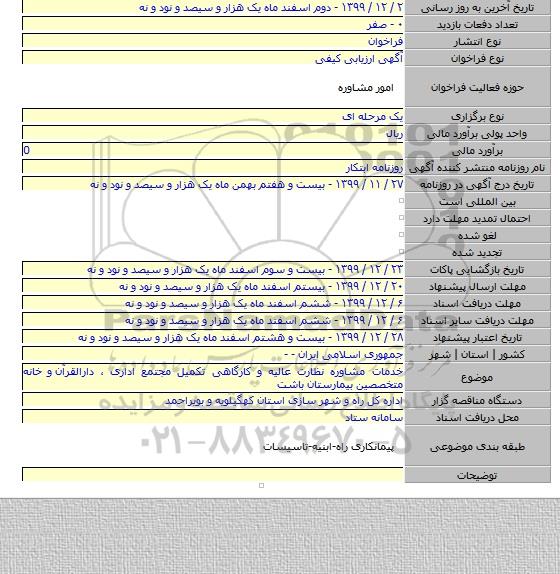 تاریخ آخرین به روز رسانی ۲ / ۱۲ / ۱۳۹۹ - دوم اسفند ماه یک هزار و سیصد و نود و نه
تعداد دفعات بازدید ۰ - صفر
نوع انتشار فراخوان
نوع فراخوان آگهی ارزیابی کیفی
حوزه فعالیت فراخوان امور مشاوره
نوع برگزاری یک مرحله ای
واحد پولی برآورد مالی ریال
برآورد مالی 0
نام روزنامه منتشر کننده آگهی روزنامه ابتکار
تاریخ درج آگهی در روزنامه ۲۷ / ۱۱ / ۱۳۹۹ - بیست و هفتم بهمن ماه یک هزار و سیصد و نود و نه
بین المللی است
احتمال تمدید مهلت دارد
لغو شده
تجدید شده
تاریخ بازگشایی پاکات ۲۳ / ۱۲ / ۱۳۹۹ - بیست و سوم اسفند ماه یک هزار و سیصد و نود و نه
مهلت ارسال پیشنهاد ۲۰ / ۱۲ / ۱۳۹۹ - بیستم اسفند ماه یک هزار و سیصد و نود و نه
مهلت دریافت اسناد ۶ / ۱۲ / ۱۳۹۹ - ششم اسفند ماه یک هزار و سیصد و نود و نه
مهلت دریافت سایر اسناد ۶ / ۱۲ / ۱۳۹۹ - ششم اسفند ماه یک هزار و سیصد و نود و نه
تاریخ اعتبار پیشنهاد ۲۸ / ۱۲ / ۱۳۹۹ - بیست و هشتم اسفند ماه یک هزار و سیصد و نود و نه
کشور | استان | شهر جمهوری اسلامی ایران - -
موضوع خدمات مشاوره نظارت عالیه و کارگاهی تکمیل مجتمع اداری ، دارالقرآن و خانه
متخصصین بیمارستان باشت
دستگاه مناقصه گزار اداره کل راه و شهر سازی استان کهگیلویه و بویراحمد
محل دریافت اسناد سامانه ستاد
طبقه بندی موضوعی پیمانکاری راه-ابنیه-تاسیسات
توضیحات
ParsNamadData
۰۲۱-۸۸۳۴۹۶۷۰-۵